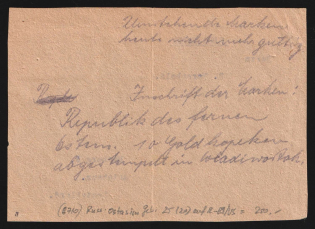 Umstehende Marken
heute nicht mehr gültig
Inschrift der Marken:
Republik des fernen
Ostens. 10 Goldkopeken
abgestempelt in Wladiwostok.